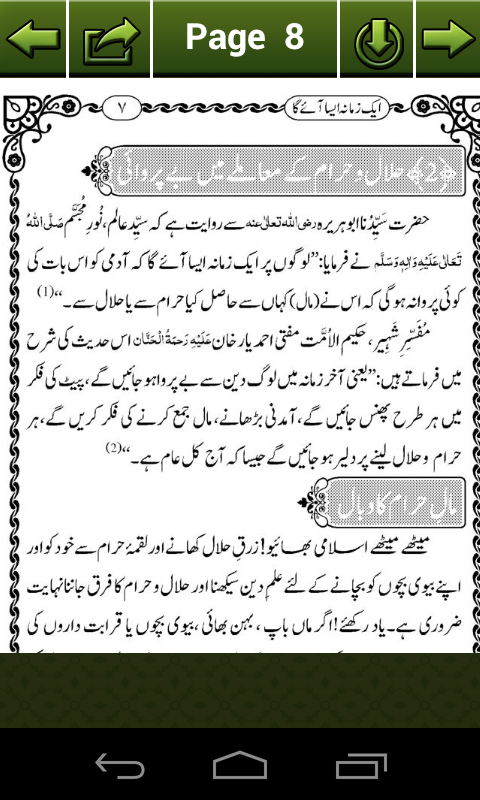 Page 8
ایک زمانہ ایسا آئے گا
۷
﴿2﴾ حلال و حرام کے معاملے میں بے پروائی
حضرت سَیِّدُنا ابو ہریرہ رضی اللہ تعالیٰ عنہ سے روایت ہے کہ سیِّدِ عالم، نُورِ مُجَسَّم صَلَّی اللہُ
تَعَالٰی عَلَیْہِ وَاٰلِہٖ وَسَلَّم نے فرمایا: ”لوگوں پر ایک زمانہ ایسا آئے گا کہ آدمی کو اس بات کی
کوئی پروا نہ ہوگی کہ اس نے (مال) کہاں سے حاصل کیا حرام سے یا حلال سے۔“ (1)
مُفَسِّرِ شَہِیر، حکیم الاُمَّت مفتی احمد یار خان عَلَیْہِ رَحمَۃُ الْحَنَّان اس حدیث کی شرح
میں فرماتے ہیں: ”یعنی آخر زمانہ میں لوگ دین سے بے پروا ہو جائیں گے، پیٹ کی فکر
میں ہر طرح پھنس جائیں گے، آمدنی بڑھانے، مال جمع کرنے کی فکر کریں گے، ہر
حرام و حلال لینے پر دلیر ہو جائیں گے جیسا کہ آج کل عام ہے۔“ (2)
مالِ حرام کا وبال
میٹھے میٹھے اسلامی بھائیو! رزقِ حلال کھانے اور لقمۂ حرام سے خود کو اور
اپنے بیوی بچوں کو بچانے کے لئے علمِ دین سیکھنا اور حلال و حرام کا فرق جاننا نہایت
ضروری ہے۔ یاد رکھئے! اگر ماں باپ، بہن بھائی، بیوی بچوں یا قرابت داروں کی